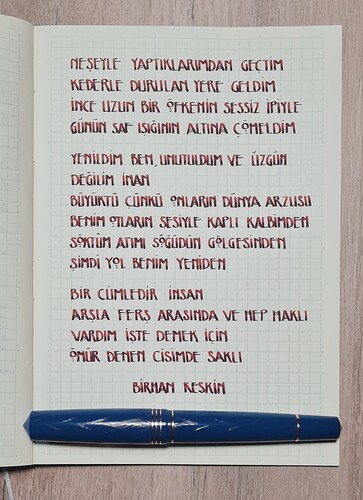 NEŞEYLE YAPTIKLARIMDAN GEÇTİM
KEDERLE DURULAN YERE GELDİM
İNCE UZUN BİR ÖFKENİN SESSİZ İPİYLE
GÜNÜN SAF IŞIĞININ ALTINA ÇÖMELDİM
YENİLDİM BEN, UNUTULDUM VE ÜZGÜN
DEĞİLİM İNAN
BÜYÜKTÜ ÇÜNKÜ ONLARIN DÜNYA ARZUSU
BENİM OTLARIN SESİYLE KAPLI KALBİMDEN
SÖKTÜM ATIMI SÖĞÜDÜN GÖLGESİNDEN
ŞİMDİ YOL BENİM YENİDEN
BİR CÜMLEDİR İNSAN
ARŞLA FERŞ ARASINDA VE HEP HAKLI
VARDIM İŞTE DEMEK İÇİN
ÖMÜR DENEN CİSİMDE SAKLI
BİRHAN KESKİN